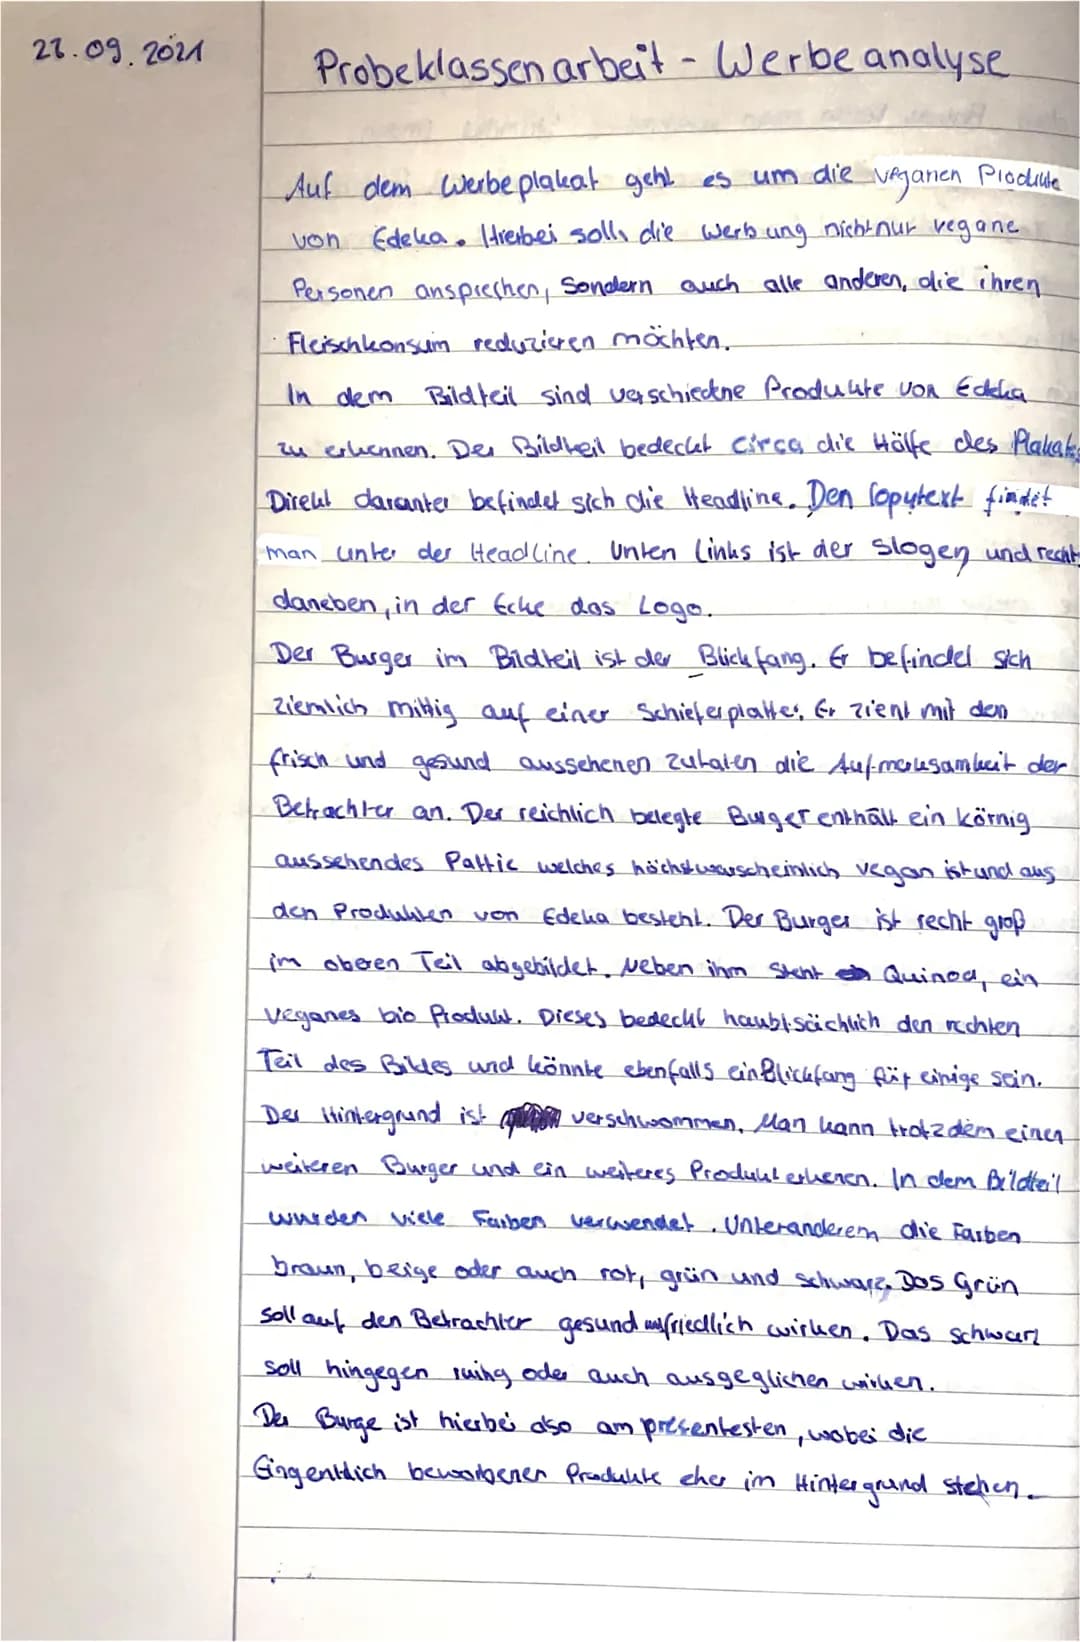 27.09.2021
Probeklassenarbeit - Werbeanalyse
Auf dem Werbeplakat geht es um die veganen Produkte
von Edeka. Hierbei soll die Werbung nicht nur vegane
Personen ansprechen, Sondern auch alle anderen, die ihren
Fleischkonsum reduzieren möchten.
In dem Bildteil sind verschiedne Produkte von Edeka
zu erkennen. Der Bildteil bedeckt circa die Hälfe des Plakats
Direkt darunter befindet sich die Headline. Den Copytext findet
man unter der HeadLine. Unten Links ist der Slogen und rechts
daneben, in der Ecke das Logo.
Der Burger im Bildteil ist der Blickfang. Er befindet sich
ziemlich mittig auf einer Schieferplatte. Er zieht mit den
frisch und gesund aussehenen Zutaten die Aufmerksamkeit der
Betrachter an. Der reichlich belegte Burger enthält ein körnig
aussehendes Pattie welches höchstwarscheinlich vegan ist und aus
den Produkten von Edeka besteht. Der Burger ist recht groß
im oberen Teil abgebildet. Neben ihm steht Quinoa, ein
veganes bio Produkt. Dieses bedeckt haubtsächlich den rechten
Teil des Bildes und könnte ebenfalls ein Blickfang für einige sein.
Der Hintergrund ist verschwommen. Man kann trotzdem einen
weiteren Burger und ein weiteres Produkt erkenen. In dem Bildteil
wurden viele Farben verwendet. Unteranderem die Farben
braun, beige oder auch rot, grün und schwarz. Das Grün
soll auf den Betrachter gesund friedlich wirken. Das schwarz
soll hingegen ruihg oder auch ausgeglichen wirken.
Der Burge ist hierbei also am presentesten, wobei die
Eingentdich beworbenen Produkte eher im Hintergrund stehen.